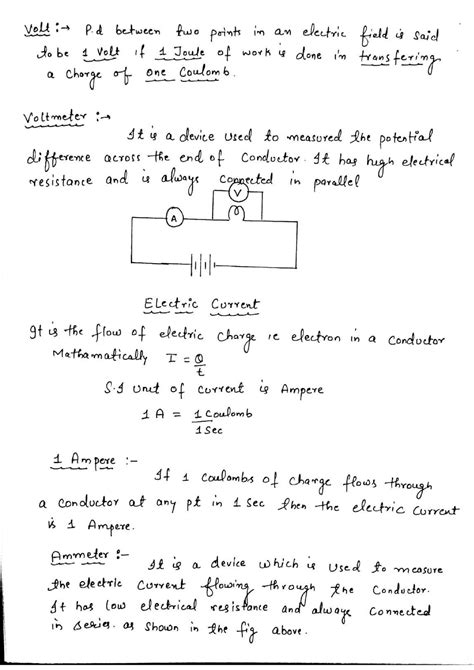 Volt :→ P.d between two points in an electric field is said
to be 1 Volt if 1 Joule of work is done in transfering
a charge of one Coulomb.
Voltmeter :→
It is a device used to measured the potential
difference across the end of Conductor. It has high electrical
resistance and is always Connected in parallel
V
A
Electric Current
It is the flow of electric charge ie electron in a conductor
Mathamatically I = Q/t
S.I unit of current is Ampere
1 A = 1 Coulomb/1 Sec
1 Ampere :-
If 1 coulombs of charge flows through
a conductor at any pt in 1 sec then the electric current
is 1 Ampere.
Ammeter :-
It is a device which is used to measure
the electric current flowing through the Conductor.
It has low electrical resistance and always Connected
in series. as shown in the fig above.